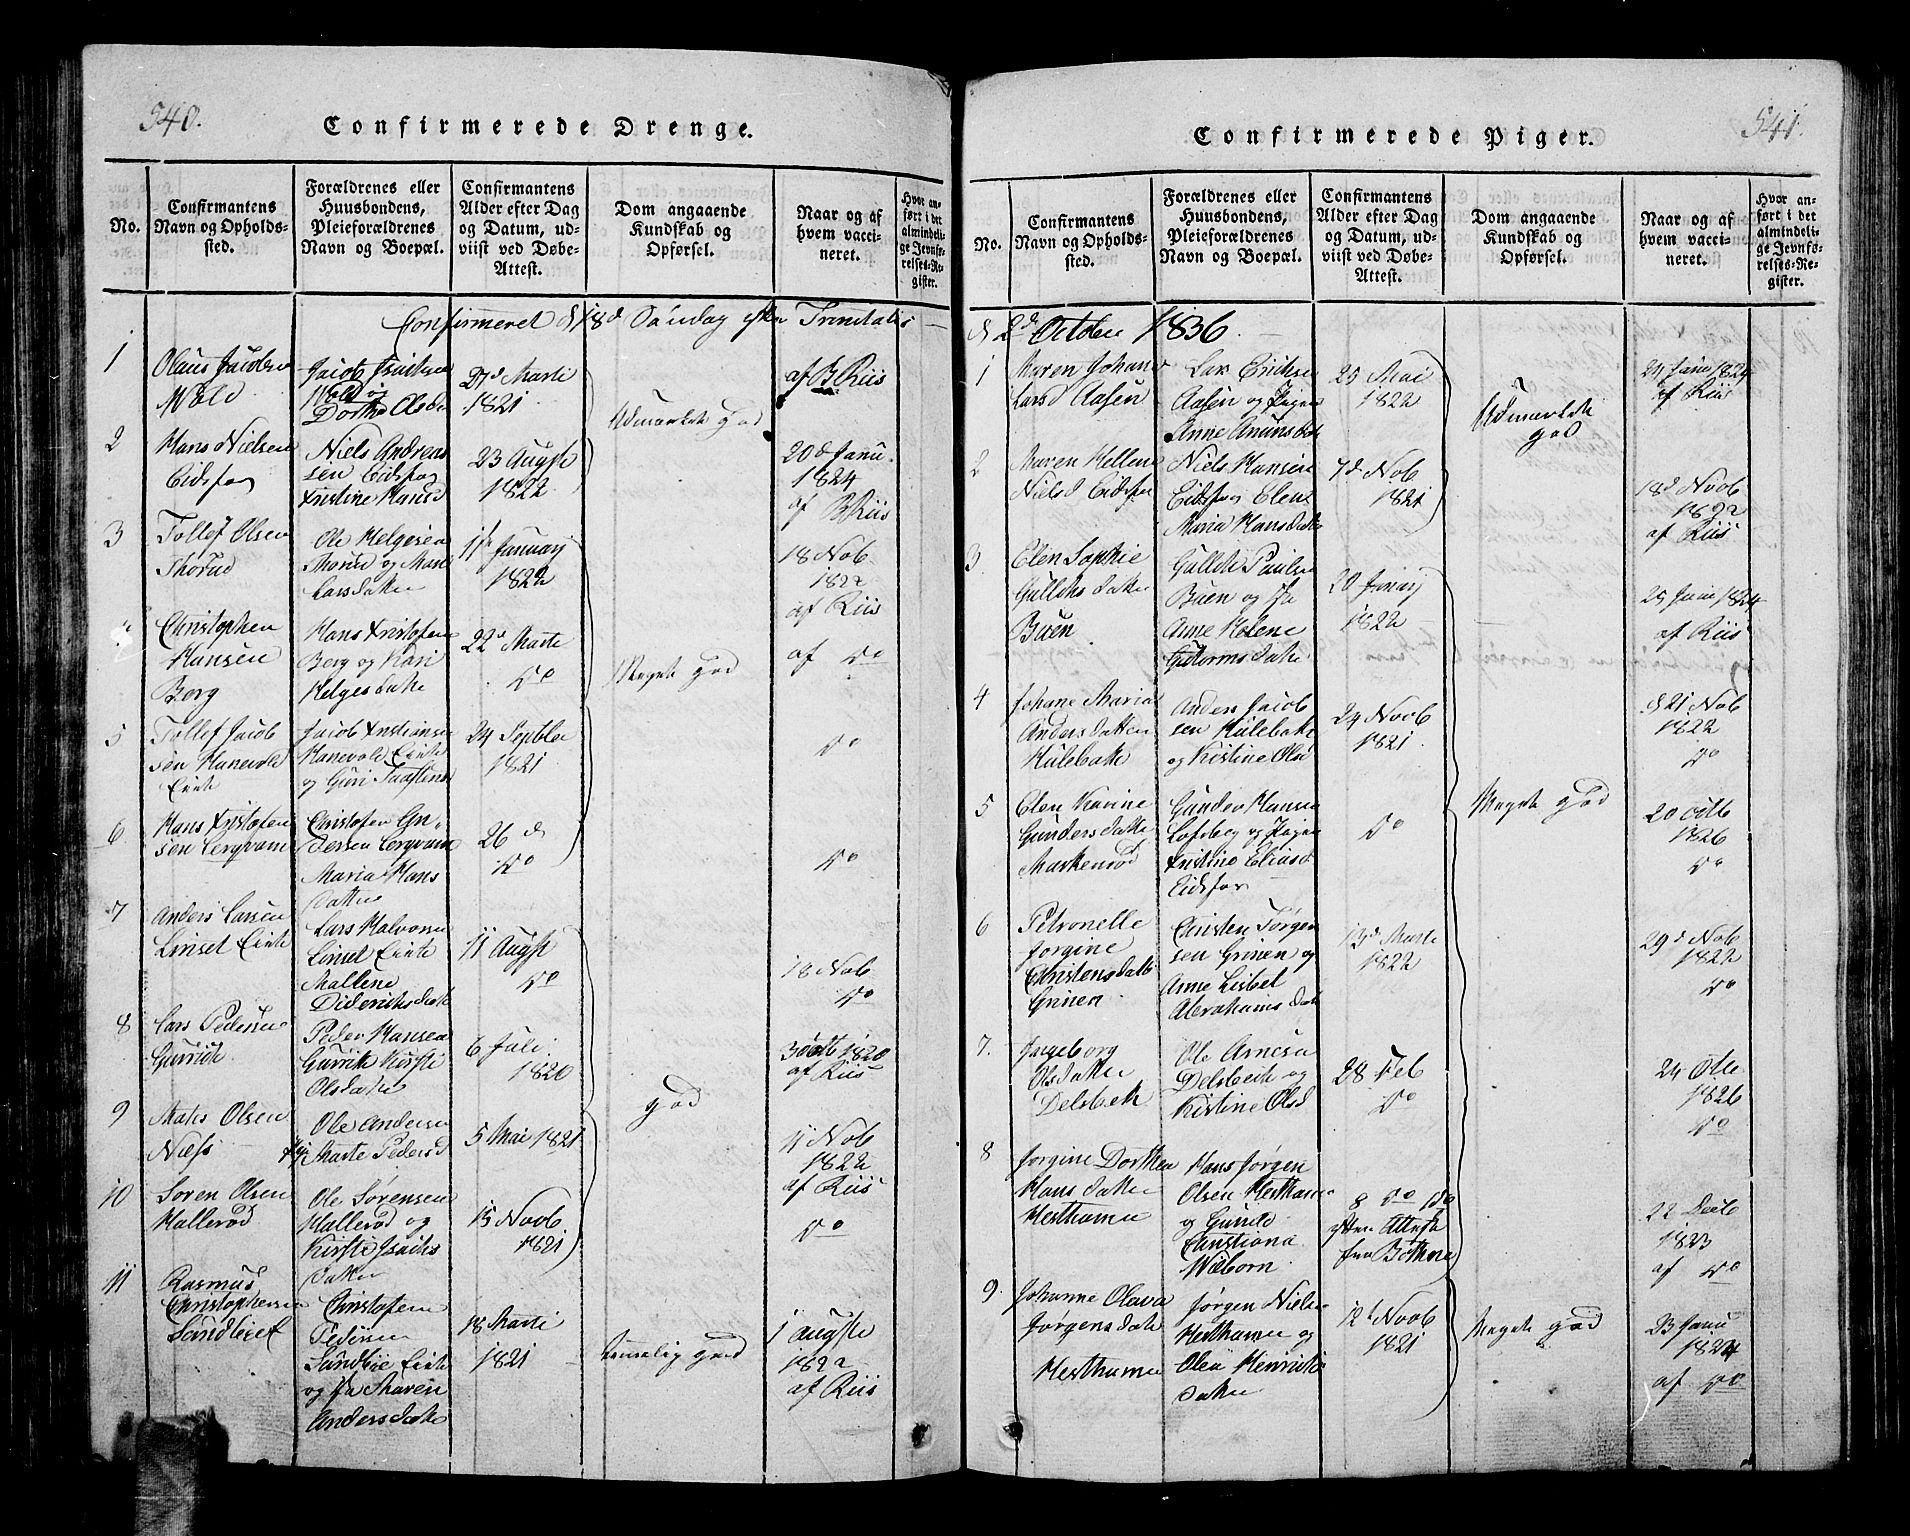 540.
Confirmerede Drenge.
No.
Confirmantens
Navn og Opholds-
sted.
Forældrenes eller
Huusbondens,
Pleieforældrenes
Navn og Boepæl.
Confirmantens
Alder efter Dag
og Datum, ud-
viist ved Døbe-
Attest.
Dom angaaende
Kundskab og
Opførsel.
Naar og af
hvem vacci-
neret.
Hvor an-
ført i det
almindeli-
ge Jevnfø-
relses-Re-
gister.
Confirmeret d 18d Søndag efter Trinitatis
1
Olaus Jacobsen
Wold
Jacob
Wold og
Dorthe Olsd
27d Marti
1821
Udmærket god
af B Riis
2
Hans Nielsen
Eidsfos
Niels Andreas
sen Eidsfos
Kristine Hansd
23 Augst
1822
20d Janu.
1824
af B Riis
3
Tollef Olsen
Thorud
Ole Helgesen
Thorud og Mari
Larsdatter
11te January
1822
18 Nob
1822
af Riis
4
Christopher
Hansen
Berg
Hans Kristofersen
Berg og Kari
Helgesdatter
22d Marti
Do
Meget god
af Do
5
Tollef Jacob
sen Hanevold
Eie
Jacob Kristiansen
Hanevold Eie
og Guri
24 Septbr
1821
Do
6
Hans Kristofer
sen Bergvam
Christofer Gu-
dersen Bergvam
Maria Hans
datter
26 d
Do
Do
7
Anders Larsen
Linset Eie
Lars Halvorsen
Linset Eie
Mallene
Dideriksdatt
11 Augst
Do
18 Nob
Do
8
Lars Pedersen
Gurrik
Peder Hansen
Gurrik Kirsti
Olsdatter
6 Juli
1820
3 Octb 1820
af Riis
god
9
Mathis Olsen
Næss
Ole Andersen
Marte Pedersd
5 Mai 1821
11 Nob
1822
af Riis
10
Søren Olsen
Hallerød
Ole Sørensen
Hallerød og
Kirsti Isachs
datter
15 Novb
1821
Do
11
Rasmus
Christophersen
Sandbeie
Christofer
Pedersen
Sundbøe Eie
og Maren
Andersdatte
18 Marti
1821
temelig god
1 Augste
1822
af Riis
541.
Confirmerede Piger.
No.
Confirmantens
Navn og Opholds-
sted.
Forældrenes eller
Huusbondens,
Pleieforældrenes
Navn og Boepæl.
Confirmantens
Alder efter Dag
og Datum, ud-
viist ved Døbe-
Attest.
Dom angaaende
Kundskab og
Opførsel.
Naar og af
hvem vacci-
neret.
Hvor an-
ført i det
almindeli-
ge Jevnfø-
relses-Re-
gister.
d 2d October 1836.
1
Maren Johanne
Larsd Aasen
Lars Erichsen
Aasen og
Anne Amundsdt
25 Mai
1822
Udmærket
god
24 Janu 1824
af Riis
2
Maren Hellene
Nielsd Eidsfos
Niels Hansen
Eidsfos Elen
Maria Hansdatter
7d Nob
1821
18d Novb
1822
af Riis
3
Elen Sophie
Gulleks datter
Buen
Gullik Paulsen
Buen og
Anne Helene
Guttormsdatte
20 Janay
1822
25 Janu 1824
af Riis
4
Johane Maria
Andersdatter
Hulebak
Anders Jacob
sen Hulebak
og Kristine Olsd
24 Novb
1821
d 21 Nob
1822
Do
5
Elen Karine
Gundersdatter
Markerød
Gunder Hansen
Lofsberg og
Kristine Eliasd
Eidsfos
Do
Meget god
20 Octb
1826
Do
6
Petronelle
Jorgine
Christensdatt
Grinen
Christen Jørgen
sen Grinen og
Anne Lisbet
Abrahamsdat
13d Marti
1822
29d Nob
1822
Do
7.
Ingeborg
Olsdatter
Delebek
Ole Arnesen
Delebek og
Kristine Olsd
28 Feb
Do
24 Octe
1826
Do
8
Jorgine Dorthea
Hansdatter
Hesthamer
Hans Jørgen
Olsen Hesthamer
og Gunild
Christiana
Weborn
8 Do Do
efter Attest
fra Bothne
22 Decb
1823
af Do
9.
Johanne Olava
Jørgensdatt
Hesthamer
Jørgen Nielsen
Hesthamer og
Olea Henriks
datter
12te Novb
1821
Meget god
23 Janu
1824
af Do